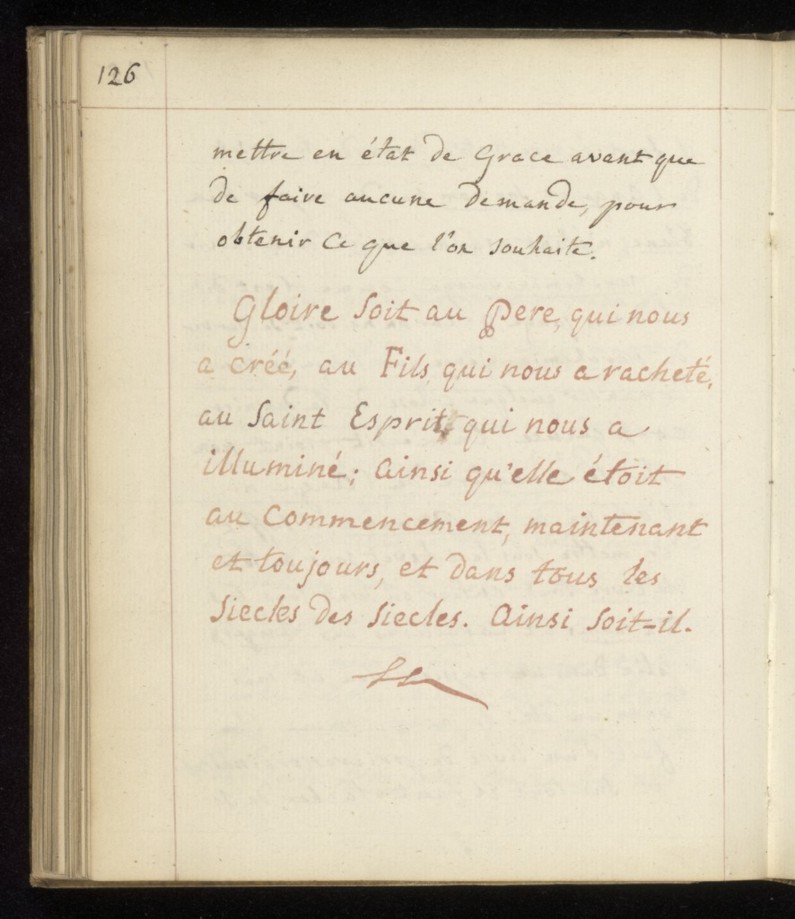 126
mettre en état de Grace avant que
de faire aucune demande, pour
obtenir Ce que l'on souhaite.
Gloire Soit au Pere, qui nous
a créé, au Fils, qui nous a racheté,
au Saint Esprit, qui nous a
illuminé; Ainsi qu'elle étoit
au Commencement, maintenant
et toujours, et dans tous les
Siecles des Siecles. Ainsi Soit-il.